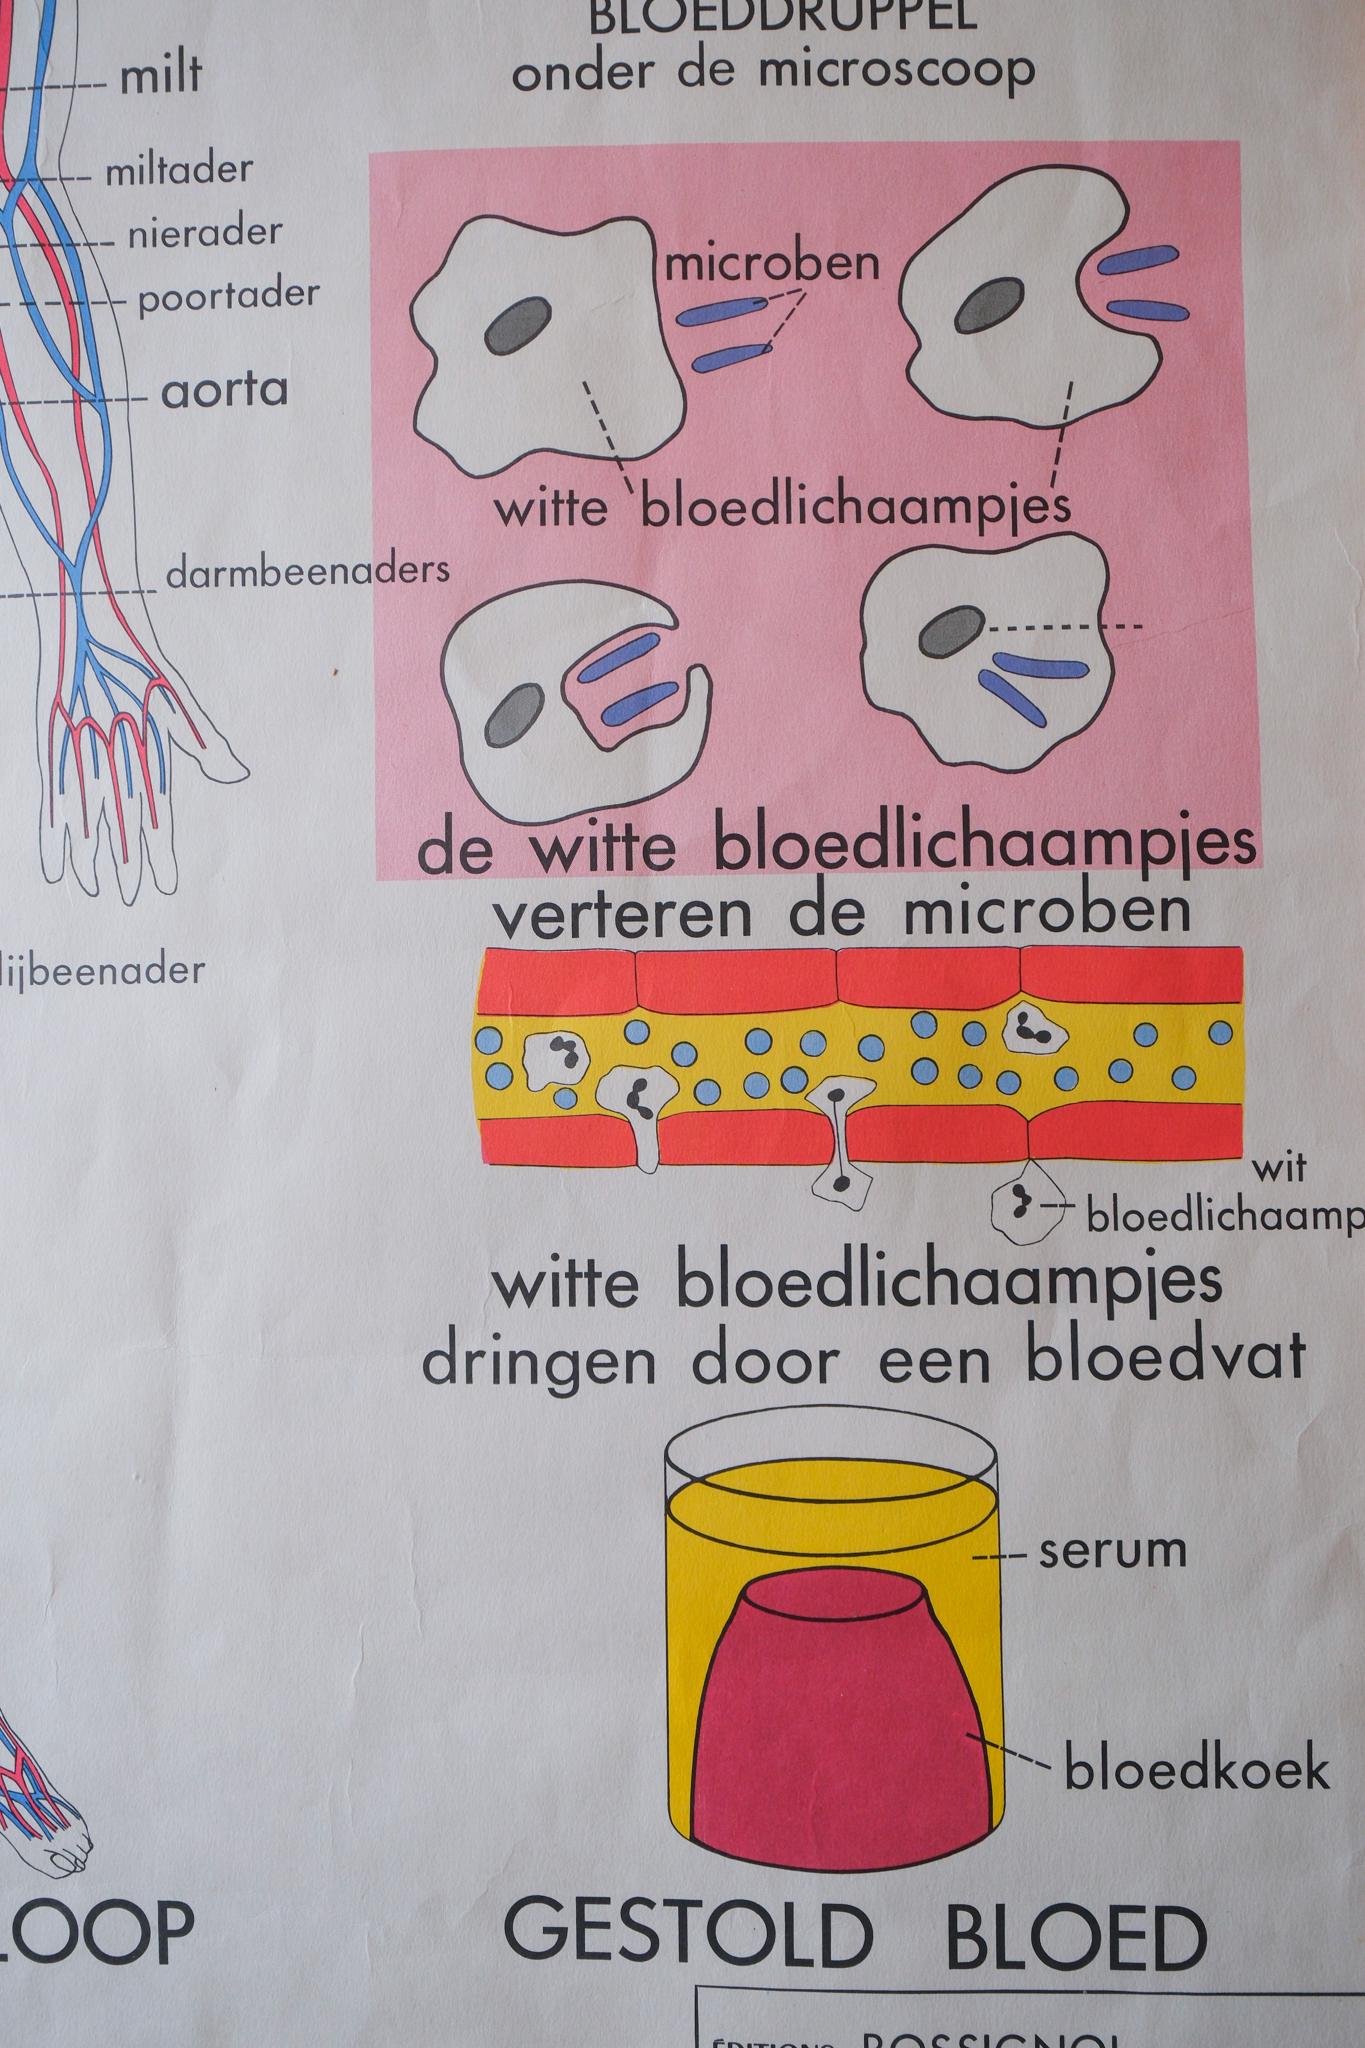 BLOEDDRUPPEL
onder de microscoop
milt
miltader
nierader
poortader
aorta
darmbeenaders
lijbeenader
microben
witte bloedlichaampjes
de witte bloedlichaampjes
verteren de microben
wit
bloedlichaamp
witte bloedlichaampjes
dringen door een bloedvat
serum
bloedkoek
LOOP
GESTOLD BLOED
ÉDITIONS ROSSIGNOL